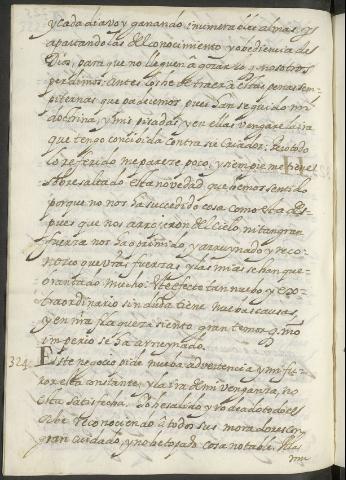 y cada dia voy ganando inumerables almas, y
apartandolas del conocimiento y obediencia de
Dios, para que no lleguen a gozarlo q̃ nosotros
perdimos. antes los he de traer a estas penas sem-
piternas que padecemos pues han seguido mi
doctrina, y mis pisadas y en ellas vengare la ira
que tengo concebida contra su Criador. Pero todo
lo referido me parece poco, y siempre me tiene
sobresaltado esta novedad que hemos sentido
porque no nos ha succedido cosa como esta des-
pues que nos arrojeron del cielo, ni tan gran
fuerza nos ha oprimido y arruynado y reco-
nozco que vr̃as fuerzas y las mias se han que-
brantado mucho. Este efecto tan nuebo y ex-
traordinario sin duda tiene nuebas causas,
y en nr̃a flaqueza siento gran temor q̃ nr̃o
imperio se ha arruynado.
324 Este negocio pide nueba advertencia y mi fu-
ror esta constante, y la ira de mi venganza no
esta satisfecha. Yo he salido y rodeado todo el
orbe reconociendo a todos sus moradores con
gran cuidado, y no he topado cosa notable. A las
mu